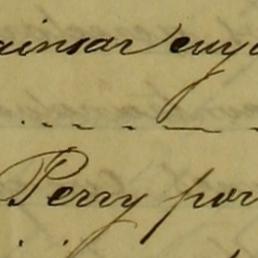 ainsar cuya
Perry por